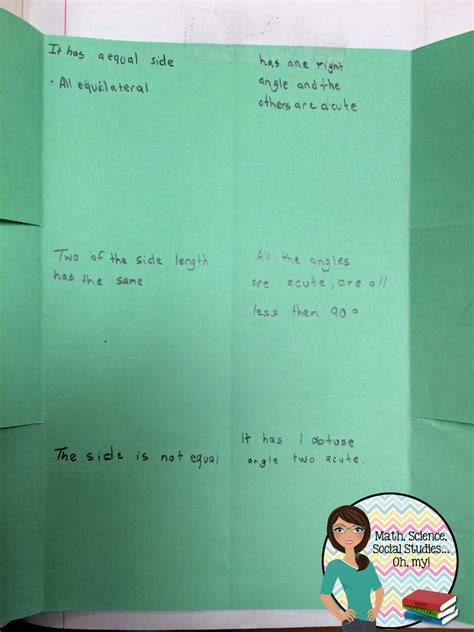 It has aequal side
• All equilateral
has one right
angle and the
others are acute
Two of the side length
has the same
All the angles
are acute, are all
less then 90°
The side is not equal
It has 1 obtuse
angle two acute.
Math, Science,
Social Studies...
Oh, my!
Math
Science